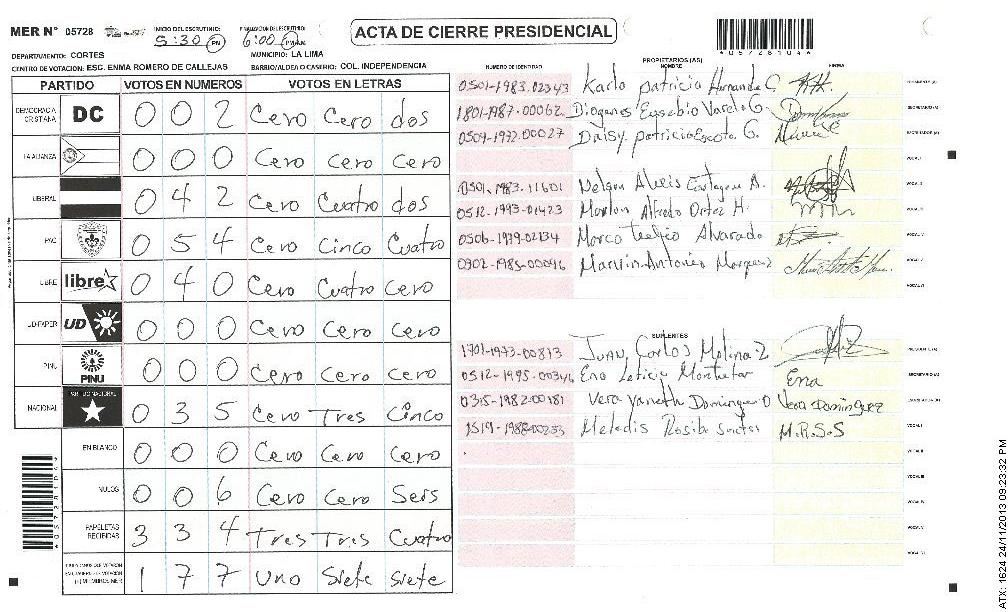 MER N° 05728
INICIO DEL ESCRUTINIO:
5:30 PM
6:00 PM
ACTA DE CIERRE PRESIDENCIAL
*05728104*
DEPARTAMENTO: CORTES
MUNICIPIO: LA LIMA
CENTRO DE VOTACION: ESC. ENMA ROMERO DE CALLEJAS
BARRIO/ALDEA O CASERIO: COL. INDEPENDENCIA
PARTIDO VOTOS EN NUMEROS VOTOS EN LETRAS
DEMOCRACIA CRISTIANA DC 0 0 2 Cero Cero dos
LA ALIANZA 0 0 0 Cero Cero Cero
LIBERAL 0 4 2 Cero Cuatro dos
PAC 0 5 4 Cero Cinco Cuatro
LIBRE libre 0 4 0 Cero Cuatro Cero
UD-FAPER UD 0 0 0 Cero Cero Cero
PINU PINU 0 0 0 Cero Cero Cero
NACIONAL PARTIDO NACIONAL 0 3 5 Cero Tres Cinco
EN BLANCO 0 0 0 Cero Cero Cero
NULOS 0 0 6 Cero Cero Seis
PAPELETAS RECIBIDAS 3 3 4 Tres Tres Cuatro
1 7 7 Uno Siete Siete
PROPIETARIOS (AS)
NUMERO DE IDENTIDAD NOMBRE FIRMA
0501-1983-02343 Karla patricia Hernandez C
1801-1987-00062 Diogenes Eusebio Varela G.
0509-1992-00027 Daisy patricia Escoto G.
0501-1983-11601 Nelson Alexis Cartagena A.
0512-1993-01423 Marlon Alfredo Ortez H.
0506-1979-02134 Marco Teofilo Alvarado
0902-1985-00096 Marvin Antonio Marquez
SUPLENTES
1701-1973-00813 Juan Carlos Molina Z
0512-1995-00346 Ena Leticia Ena
0315-1982-00181 Vera Yaneth Dominguez O Vera Dominguez
1519-1988-00253 Meledis Rosibe Santos M.R.S.S
ATX: 1624 24/11/2013 09:23:32 PM